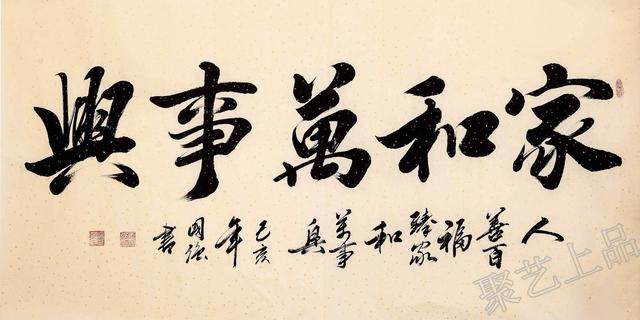 家和萬事興
人善百福臻家和萬事興己亥年国强書
聚艺上品